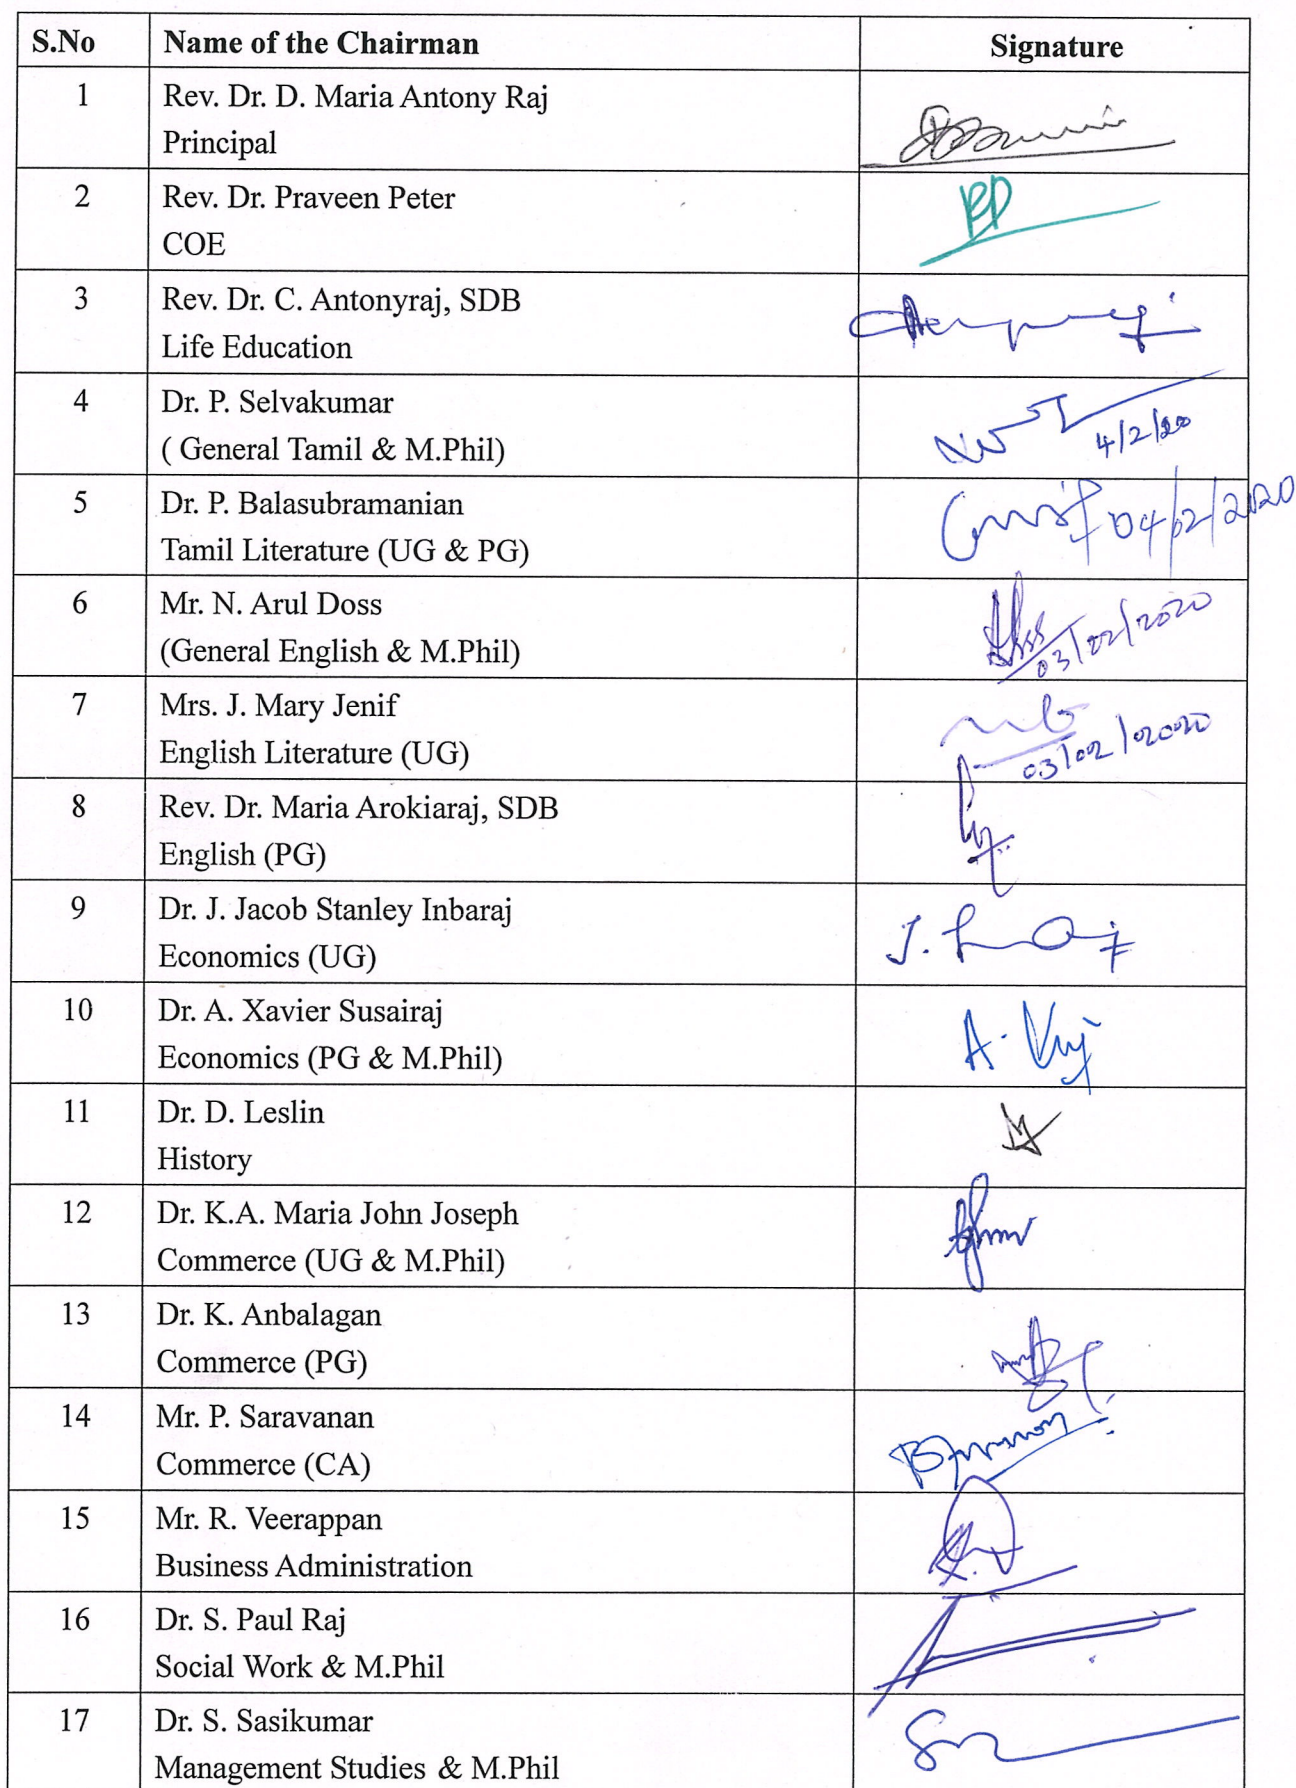 S.No Name of the Chairman Signature
1 Rev. Dr. D. Maria Antony Raj
Principal
2 Rev. Dr. Praveen Peter
COE
3 Rev. Dr. C. Antonyraj, SDB
Life Education
4 Dr. P. Selvakumar
( General Tamil & M.Phil)
4/2/20
5 Dr. P. Balasubramanian
04/02/2020
Tamil Literature (UG & PG)
6 Mr. N. Arul Doss
(General English & M.Phil)
03/02/2020
7 Mrs. J. Mary Jenif
English Literature (UG)
03/02/2020
8 Rev. Dr. Maria Arokiaraj, SDB
English (PG)
9 Dr. J. Jacob Stanley Inbaraj
Economics (UG)
10 Dr. A. Xavier Susairaj
Economics (PG & M.Phil)
11 Dr. D. Leslin
History
12 Dr. K.A. Maria John Joseph
Commerce (UG & M.Phil)
13 Dr. K. Anbalagan
Commerce (PG)
14 Mr. P. Saravanan
Commerce (CA)
15 Mr. R. Veerappan
Business Administration
16 Dr. S. Paul Raj
Social Work & M.Phil
17 Dr. S. Sasikumar
Management Studies & M.Phil